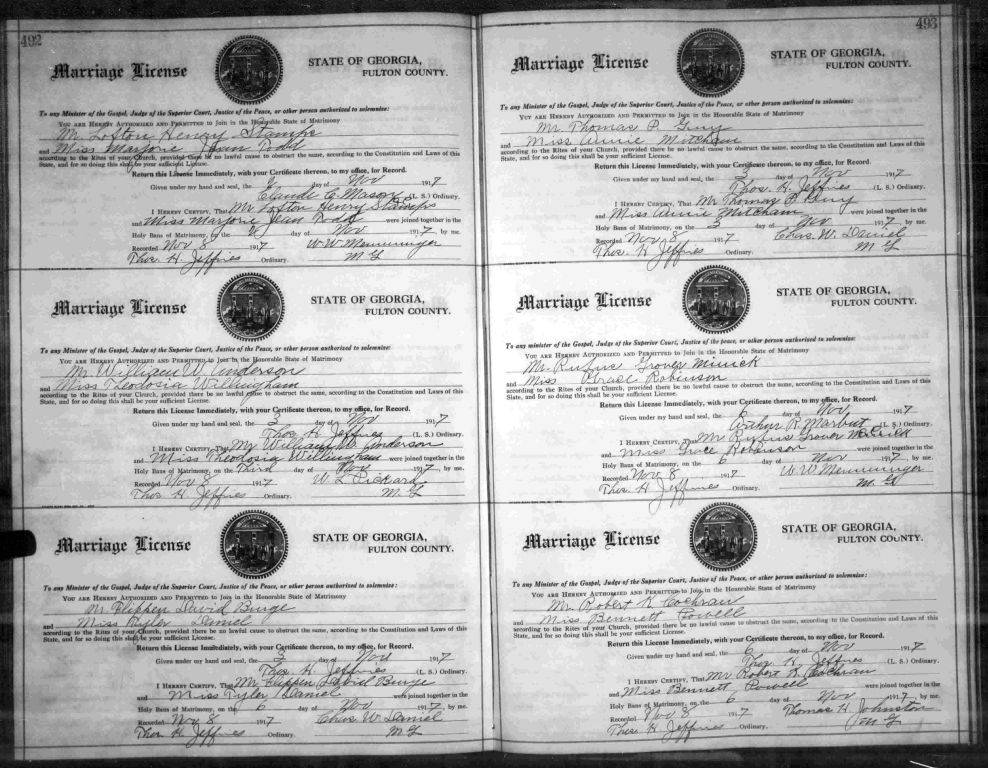 492
Marriage License
STATE OF GEORGIA,
FULTON COUNTY.
To any Minister of the Gospel, Judge of the Superior Court, Justice of the Peace, or other person authorized to solemnize:
YOU ARE HEREBY AUTHORIZED AND PERMITTED to Join in the Honorable State of Matrimony
Mr Lofton Henry Stamps
and Miss Marjorie Jean Todd
according to the Rites of your Church, provided there be no lawful cause to obstruct the same, according to the Constitution and Laws of this
State, and for so doing this shall be your sufficient License.
Return this License Immediately, with your Certificate thereon, to my office, for Record.
Given under my hand and seal, the day of Nov 1917
Claude C. Mason (L. S.) Ordinary.
I HEREBY CERTIFY, That Mr Lofton Henry Stamps
and Miss Marjorie Jean Todd were joined together in the
Holy Bans of Matrimony, on the day of Nov 1917, by me.
Recorded Nov 8 1917 W W Memminger
Thos. H Jeffries Ordinary. M G
Marriage License
STATE OF GEORGIA,
FULTON COUNTY.
To any Minister of the Gospel, Judge of the Superior Court, Justice of the Peace, or other person authorized to solemnize:
YOU ARE HEREBY AUTHORIZED AND PERMITTED to Join in the Honorable State of Matrimony
Mr William W. Anderson
and Miss Theodosia Willingham
according to the Rites of your Church, provided there be no lawful cause to obstruct the same, according to the Constitution and Laws of this
State, and for so doing this shall be your sufficient License.
Return this License Immediately, with your Certificate thereon, to my office, for Record.
Given under my hand and seal, the 3 day of Nov 1917
Thos H Jeffries (L. S.) Ordinary.
I HEREBY CERTIFY, That Mr William W. Anderson
and Miss Theodosia Willingham were joined together in the
Holy Bans of Matrimony, on the Third day of Nov 1917, by me.
Recorded Nov 8 1917 W L Pickard
Thos H Jeffries Ordinary. M. G
Marriage License
STATE OF GEORGIA,
FULTON COUNTY.
To any Minister of the Gospel, Judge of the Superior Court, Justice of the Peace, or other person authorized to solemnize:
YOU ARE HEREBY AUTHORIZED AND PERMITTED to Join in the Honorable State of Matrimony
Mr Flippen David Burge
and Miss Tyler Daniel
according to the Rites of your Church, provided there be no lawful cause to obstruct the same, according to the Constitution and Laws of this
State, and for so doing this shall be your sufficient License.
Return this License Immediately, with your Certificate thereon, to my office, for Record.
Given under my hand and seal, the 3 day of Nov 1917
Thos H Jeffries (L. S.) Ordinary.
I HEREBY CERTIFY, That Mr Flippen David Burge
and Miss Tyler Daniel were joined together in the
Holy Bans of Matrimony, on the 6 day of Nov 1917, by me.
Recorded Nov 8 1917 Chas W Daniel
Thos H Jeffries Ordinary. M G
493
Marriage License
STATE OF GEORGIA,
FULTON COUNTY.
To any Minister of the Gospel, Judge of the Superior Court, Justice of the Peace, or other person authorized to solemnize:
YOU ARE HEREBY AUTHORIZED AND PERMITTED to Join in the Honorable State of Matrimony
Mr Thomas P.
and Miss Annie Mitcham
according to the Rites of your Church, provided there be no lawful cause to obstruct the same, according to the Constitution and Laws of this
State, and for so doing this shall be your sufficient License.
Return this License Immediately, with your Certificate thereon, to my office, for Record.
Given under my hand and seal, the 3 day of Nov 1917
Thos. H. Jeffries (L. S.) Ordinary.
I HEREBY CERTIFY, That Mr Thomas P
and Miss Annie Mitcham were joined together in the
Holy Bans of Matrimony, on the 3 day of Nov 1917, by me.
Recorded Nov 8 1917 Chas. W. Daniel
Thos. H Jeffries Ordinary. M G
Marriage License
STATE OF GEORGIA,
FULTON COUNTY.
To any Minister of the Gospel, Judge of the Superior Court, Justice of the Peace, or other person authorized to solemnize:
YOU ARE HEREBY AUTHORIZED AND PERMITTED to Join in the Honorable State of Matrimony
Mr Rufus Grover Minick
and Miss Grace Robinson
according to the Rites of your Church, provided there be no lawful cause to obstruct the same, according to the Constitution and Laws of this
State, and for so doing this shall be your sufficient License.
Return this License Immediately, with your Certificate thereon, to my office, for Record.
Given under my hand and seal, the 6 day of Nov 1917
Arthur R. Marbut (L. S.) Ordinary.
I HEREBY CERTIFY, That Mr Rufus Grover Minick
and Miss Grace Robinson were joined together in the
Holy Bans of Matrimony, on the 6 day of Nov 1917, by me.
Recorded Nov 8 1917 W W Memminger
Thos. H Jeffries Ordinary. M. G
Marriage License
STATE OF GEORGIA,
FULTON COUNTY.
To any Minister of the Gospel, Judge of the Superior Court, Justice of the Peace, or other person authorized to solemnize:
YOU ARE HEREBY AUTHORIZED AND PERMITTED to Join in the Honorable State of Matrimony
Mr. Robert K Cochran
and Miss Bennett Powell
according to the Rites of your Church, provided there be no lawful cause to obstruct the same, according to the Constitution and Laws of this
State, and for so doing this shall be your sufficient License.
Return this License Immediately, with your Certificate thereon, to my office, for Record.
Given under my hand and seal, the 6 day of Nov 1917
Thos H Jeffries (L. S.) Ordinary.
I HEREBY CERTIFY, That Mr Robert K. Cochran
and Miss Bennett Powell were joined together in the
Holy Bans of Matrimony, on the 6 day of Nov 1917, by me.
Recorded Nov 8 1917 Thomas H Johnston
Thos H Jeffries Ordinary. M G